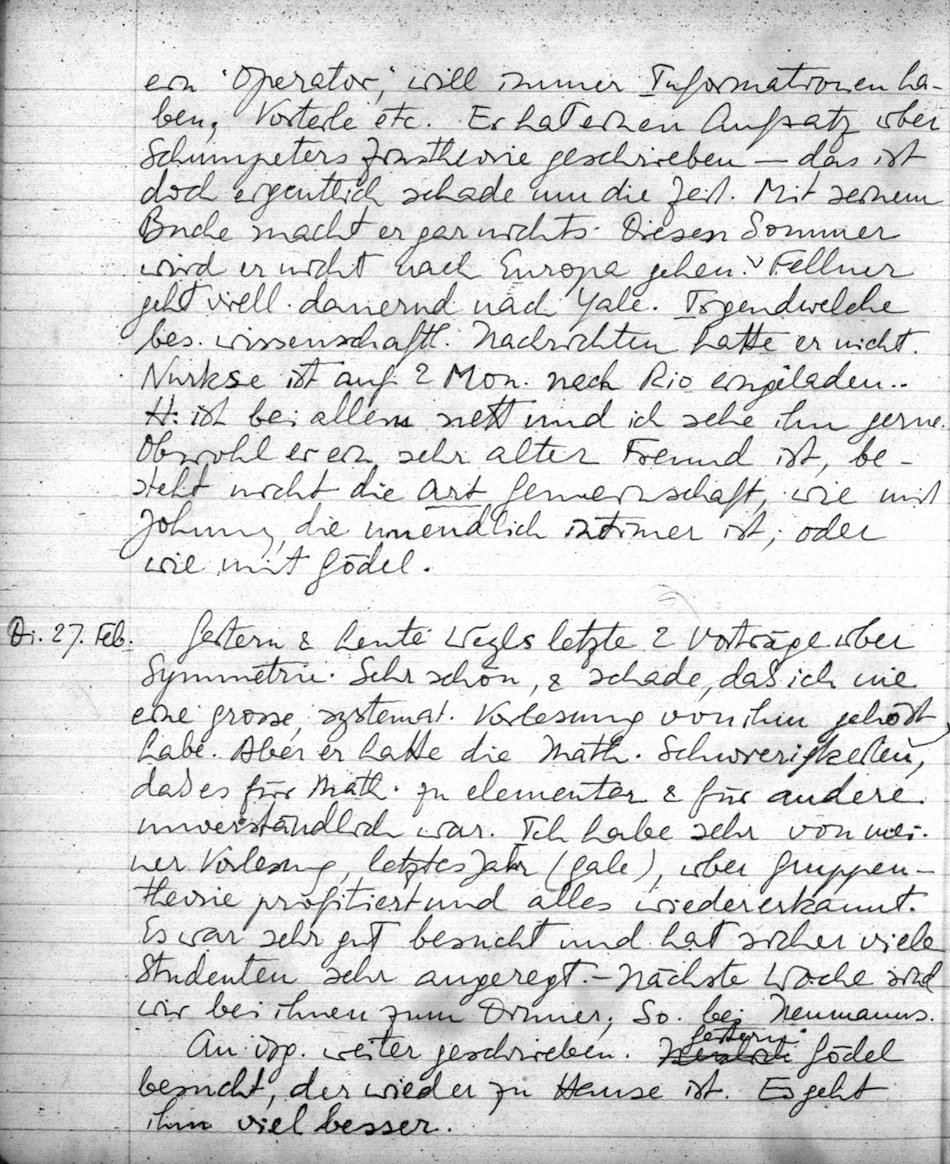 ein 'Operator', will immer Informationen ha-
ben, Vorteile etc. Er hat einen Aufsatz über
Schumpeters Zinstheorie geschrieben — das ist
doch eigentlich schade um die Zeit. Mit seinem
Buche macht er gar nichts. Diesen Sommer
wird er nicht nach Europa gehen. Fellner
geht viell. dauernd nach Yale. Irgendwelche
bes. wissenschaftl. Nachrichten hatte er nicht.
Nurkse ist auf 2 Mon. nach Rio eingeladen..
H. ist bei allem nett und ich sehe ihn gerne.
Obwohl er ein sehr alter Freund ist, be-
steht nicht die Art Gemeinschaft, wie mit
Johnny, die unendlich intimer ist; oder
wie mit Gödel.
Di. 27. Feb. Gestern & heute Weyls letzte 2 Vorträge über
Symmetrie. Sehr schön, & schade, daß ich nie
eine grosse, systemat. Vorlesung von ihm gehört
habe. Aber er hatte die Math. Schwierigkeiten,
daß es für Math. zu elementar & für andere
unverständlich war. Ich habe sehr von mei-
ner Vorlesung, letztes Jahr (Gale), über Gruppen-
theorie profitiert und alles wiedererkannt.
Es war sehr gut besucht und hat sicher viele
Studenten sehr angeregt. – Nächste Woche sind
wir bei ihnen zum Dinner; So. bei Neumanns.
An Osp. weiter geschrieben. gestern Gödel
besucht, der wieder zu Hause ist. Es geht
ihm viel besser.